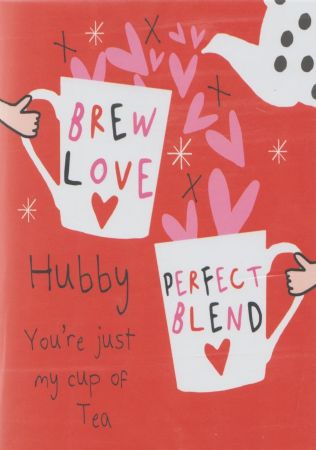 BREW
LOVE
PERFECT
BLEND
Hubby
You're just
my cup of
Tea